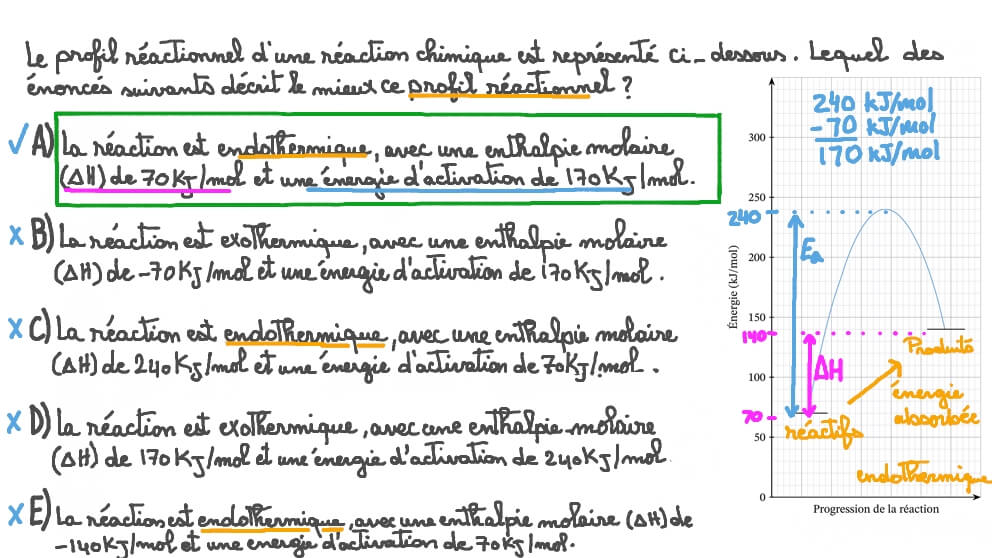 Le profil réactionnel d'une réaction chimique est représenté ci-dessous. Lequel des
énoncés suivants décrit le mieux ce profil réactionnel ?
A) La réaction est endothermique, avec une enthalpie molaire
(ΔH) de 70 KJ/mol et une énergie d'activation de 170 KJ/mol.
B) La réaction est exothermique, avec une enthalpie molaire
(ΔH) de -70 KJ/mol et une énergie d'activation de 170 KJ/mol.
C) La réaction est endothermique, avec une enthalpie molaire
(ΔH) de 240 KJ/mol et une énergie d'activation de 70 KJ/mol.
D) La réaction est exothermique, avec une enthalpie molaire
(ΔH) de 170 KJ/mol et une énergie d'activation de 240 KJ/mol
E) La réaction est endothermique, avec une enthalpie molaire (ΔH) de
-140 KJ/mol et une énergie d'activation de 70 KJ/mol.
240 kJ/mol
- 70 kJ/mol
170 kJ/mol
300
250
240
200
Ea
150
140
Produits
ΔH
100
énergie
absorbée
70
réactifs
50
endothermique
0
Énergie (kJ/mol)
Progression de la réaction